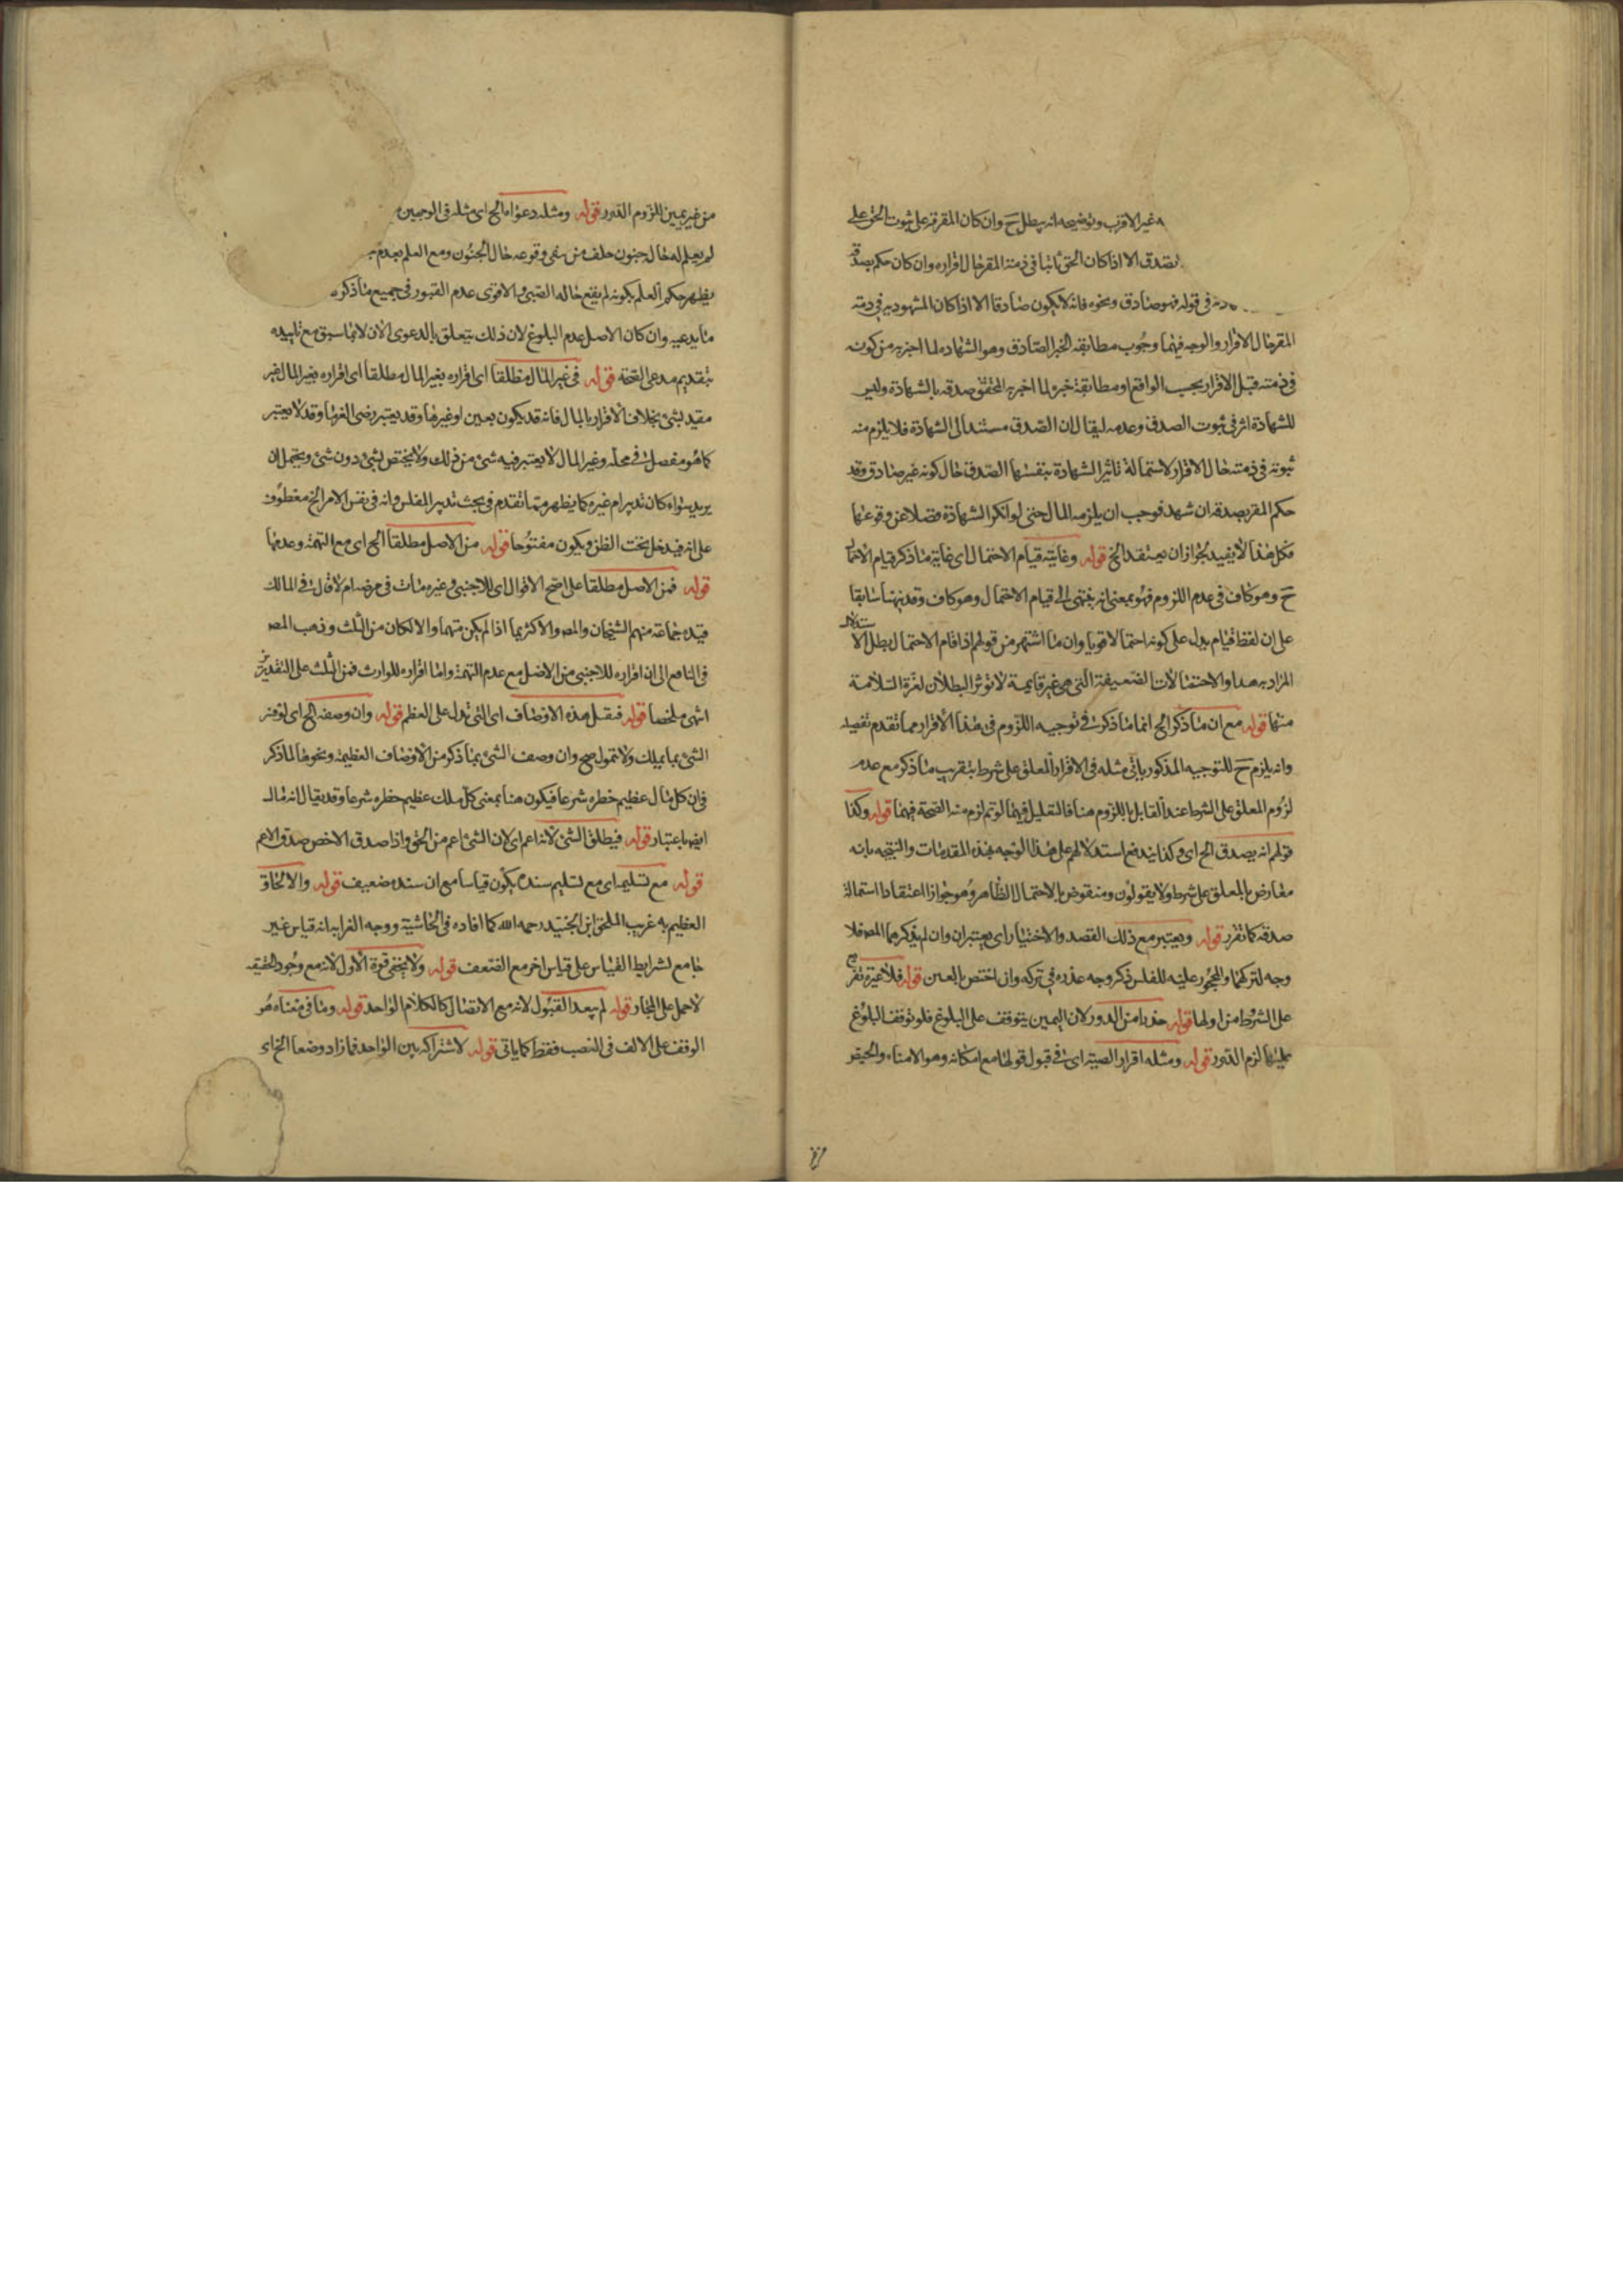 غير الاقرب وتوضيحه انه يبطل ح وان كان المقر به على ثبوت الحق على
تصدق الا اذا كان الحق ثابتا في ذمة المقر حال اقراره وان كان حكم بصدقه
في قوله فهو صادق ونحوه فانه لا يكون صادقا الا اذا كان المشهود به في ذمته
المقر حال الاقرار والوجه فيهما وجوب مطابقة الخبر الصادق وهو الشهادة لما اخبر به من كونه
في ذمته قبل الاقرار بحسب الواقع او مطابقة خبره لما اخبر به المحقق صدقه بالشهادة وليس
للشهادة اثر في ثبوت الصدق وعدمه ليقال ان الصدق مستند الى الشهادة فلا يلزم منه
ثبوته في ذمته حال الاقرار لاستحالة تاثير الشهادة بنفسها الصدق حال كونه غير صادق وقد
حكم المقر بصدقه ان شهد فوجب ان يلزمه المال حتى لو انكر الشهادة فضلا عن وقوعها
فكل هذا لا يفيد لجواز ان يعتقد الخ قوله وغايته قيام الاحتمال اى غاية ما ذكر قيام الاحتمال
ح وهو كاف في عدم اللزوم فهو بمعنى انه ينتهى الى قيام الاحتمال وهو كاف وقد نبهنا سابقا
على ان لفظ قيام يدل على كونه احتمالا قويا وان ما اشتهر من قولهم اذا قام الاحتمال بطل الاستدلال
المراد به هذا والاحتمالات الضعيفة التى هى غير قايمة لا تؤثر البطلان لغزة السلامة
منها قوله مع ان ما ذكر الخ انما ما ذكرت في توجيه اللزوم في هذا الاقرار مما تقدم تفصيله
وانه يلزم ح للتوجيه المذكور ياتى مثله في الاقرار المعلق على شرط بتقريب ما ذكر مع عدم
لزوم المعلق على الشرط عند القايل باللزوم هنا فالتعليل فيهما لو تم لزم منه الصحة فيهما قوله وكذا
قولهم انه يصدق الخ اى وكذا يندفع استدلالهم على هذا الوجه بهذه المقدمات والنتيجة بانه
معارض بالمعلق على شرط ولا يقولون ومنقوض بالاحتمال الظاهر وهو جواز اعتقاد استحالة
صدقه كما تقرر قوله ويعتبر مع ذلك القصد والاختيار اى يعتبران وان لم يذكرهما المص فلا
وجه لتركهما والمحجور عليه للفلس ذكر وجه عذره في تركه وان اختص بالعين قوله فلا عبرة
على الشرط من اولها قوله حذرا من الدور لان اليمين يتوقف على البلوغ فلو توقف البلوغ
عليها لزم الدور قوله ومثله اقرار الصبية اى في قبول قولها مع امكانه وهو الامناء والحيض
من غير يمين للزوم الدور قوله ومثله دعواها الخ اى مثله في الوجهين
لم يعلم له حال جنون حلف من نفى وقوعه حال الجنون ومع العلم بعدم
يظهر حكم العلم بكونه لم يقع حاله الصبى والاقوى عدم القبور في جميع ما ذكره
ما يدعيه وان كان الاصل عدم البلوغ لان ذلك يتعلق بالدعوى الان لا بما سبق مع تاييده
بتقديم مدعى الصحة قوله في غير المال مطلقا اى اقراره بغير المال مطلقا اى اقراره بغير المال غير
مقيد بشئ بخلاف الاقرار بالمال فانه قد يكون بعين او غيرها وقد يعتبر رضى الغرما وقد لا يعتبر
كما هو مفصل في محله وغير المال لا يعتبر فيه شئ من ذلك ولا يختص بشئ دون شئ ويحتمل ان
يريد سواء كان تدبير ام غيره كما يظهر مما تقدم في بحث تدبير المفلس وانه في نفس الامر الخ معطوف
على انه فيدخل تحت الظن ويكون مفتوحا قوله من الاصل مطلقا الخ اى مع التهمة وعدمها
قوله فمن الاصل مطلقا على اصح الاقوال اى للاجنبى وغيره مات في مرضه ام لا قال في المسالك
قيده جماعة منهم الشيخان والمص والاكثر بما اذا لم يكن متهما والا لكان من الثلث وذهب المص
في النافع الى ان اقراره للاجنبى من الاصل مع عدم التهمة واما اقراره للوارث فمن الثلث على التقديرين
انتهى ملخصا قوله فنقل هذه الاوصاف اى التى تدل على العظم قوله وان وصفه الخ اى لو فسر
الشئ بما يملك ولا تمول صح وان وصف الشئ بما ذكر من الاوصاف العظيمة ونحوها لما ذكر
فان كل مال عظيم خطره شرعا فيكون هنا بمعنى كل ملك عظيم خطره شرعا وقد يقال انه مال
ايضا باعتبار قوله فيطلق الشئ لانه اعم اى لان الشئ اعم من الحق واذا صدق الاخص صدق الاعم
قوله مع تسليمه اى مع تسليم سنده يكون قياسا مع ان سنده ضعيف قوله والالحاق
العظيم به غريب الملحق ابن الجنيد رحمه الله كما افاده في الحاشية ووجه الغرابه انه قياس غير
جامع لشرايط القياس على قياس اخر مع الضعف قوله ولا يخفى قوة الاول لانه مع وجود الحقيقه
لا حمل على المجاز قوله لم يبعد القبول لانه مع الاتصال كالكلام الواحد قوله وما في معناه هو
الوقف على الالف في النصب فقط كما ياتى قوله لاشتراكه بين الواحد فما زاد وضعا الخ اى